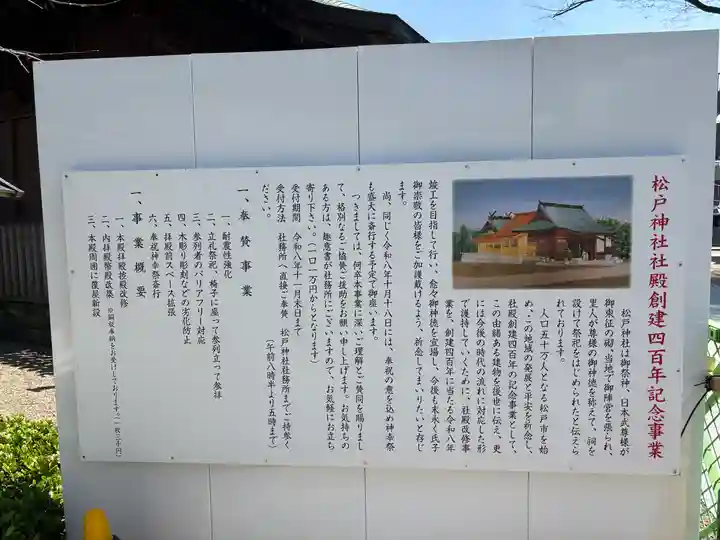 松戸神社社殿創建四百年記念事業
松戸神社は御祭神、日本武尊様が
御東征の砌、当地で御陣営を張られ、
里人が尊様の御神徳を称えて、祠を
設けて祭祀をはじめられたと伝えら
れております。
人口五十万人となる松戸市を始
め、この地域の発展と平安を祈念し、
社殿創建四百年の記念事業として、
この由緒ある建物を後世に伝え、更
には今後の時代の流れに対応した形
で護持していくために、社殿改修事
業を、創建四百年に当たる令和八年
竣工を目指して行い、愈々御神徳を宣揚し、今後も末永く氏子
御崇敬の皆様をご加護戴けるよう、祈念してまいりたいと存じ
ます。
尚、同じく令和八年十月十八日には、奉祝の意を込め神幸祭
も盛大に斎行する予定で御座います。
つきましては、何卒本事業に深いご理解とご賛同を賜りまし
て、格別なるご協賛ご援助をお願い申し上げます。お気持ちの
ある方は、趣意書が社務所にございますので、お気軽にお立ち
寄り下さい。(一口一万円からとなります)
受付期間 令和八年十一月末日まで
受付方法 社務所へ直接ご奉賛 松戸神社社務所までご持参く
ださい。 (午前八時半より五時まで)
一、奉賛事業
一、耐震性強化
二、立礼祭祀、椅子に座って参列立って参拝
三、参列者のバリアフリー対応
四、木彫り彫刻などの劣化防止
五、拝殿前スペース拡張
六、奉祝神幸祭斎行
一、事業概要
一、本殿拝殿捻殿改修
二、内拝殿幣殿改築 ※銅板奉納もお受けしております。(一枚三千円)
三、本殿周囲に覆屋新設